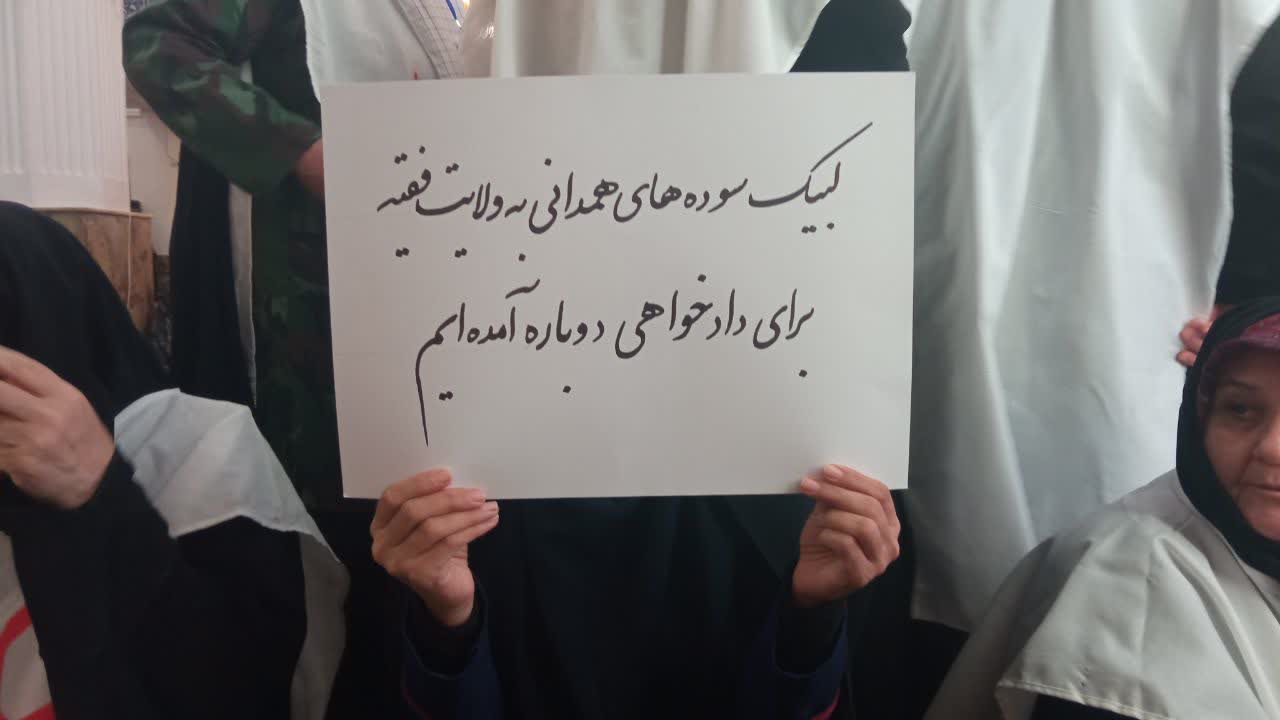 لبیک سوده های همدانی به ولایت فقیه
برای دادخواهی دوباره آمده ایم